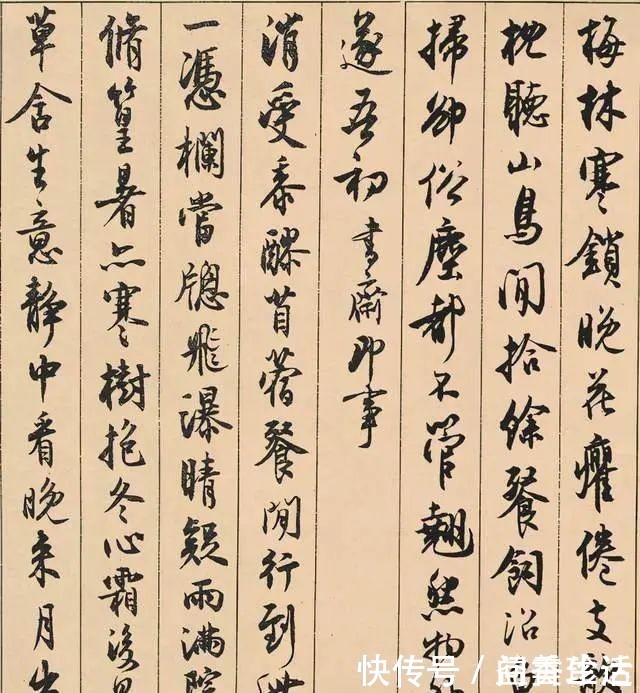 梅林寒鎖晚花癯倦支
枕聽山鳥閒拾餘餐飼沼
掃卻俗塵都不管翹然物
遂吾初 書齋即事
消受黍醪苜蓿餐閒行到此
一憑欄當牕飛瀑晴疑雨滿院
脩篁暑亦寒樹抱冬心霜後
草舍生意靜中看晚來月出
快传号／